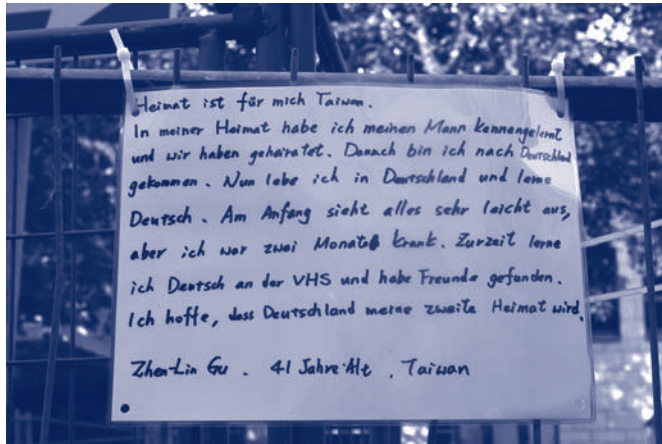 Heimat ist für mich Taiwan.
In meiner Heimat habe ich meinen Mann kennengelernt
und wir haben geheiratet. Danach bin ich nach Deutschland
gekommen. Nun lebe ich in Deutschland und lerne
Deutsch. Am Anfang sieht alles sehr leicht aus,
aber ich war zwei Monate krank. Zurzeit lerne
ich Deutsch an der VHS und habe Freunde gefunden.
Ich hoffe, dass Deutschland meine zweite Heimat wird.
Zhen-Lin Gu. 41 Jahre Alt. Taiwan